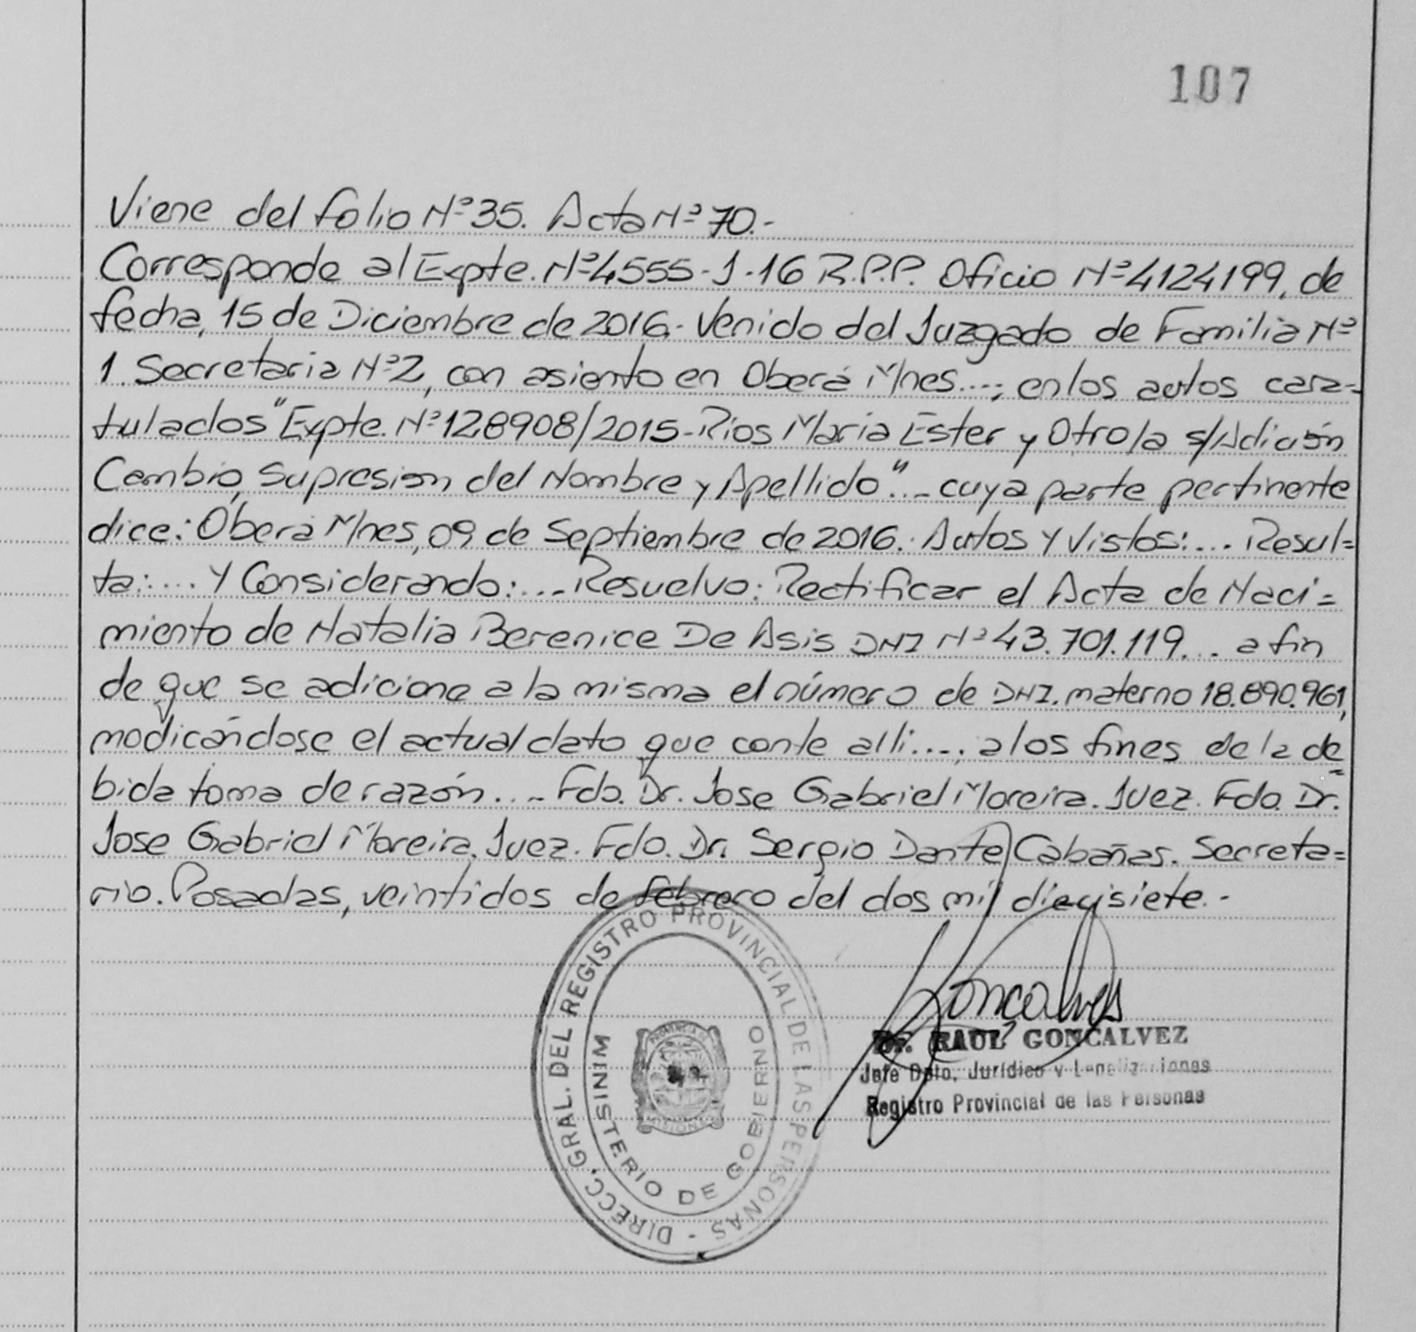 107
Viene del folio Nº 35. Acta Nº 70.-
Corresponde al Expte. Nº 4555-J-16 R.P.P. Oficio Nº 4124199, de
fecha, 15 de Diciembre de 2016.- Venido del Juzgado de Familia Nº
1. Secretaria Nº 2, con asiento en Oberá Mnes...; en los autos cara=
tulados "Expte. Nº 128908/2015-Rios Maria Ester y Otro/a s/Adición
Cambio, Supresion del Nombre y Apellido"... cuya parte pertinente
dice: Oberá Mnes, 09 de Septiembre de 2016. Autos y Vistos:... Resul=
ta:... Y Considerando:... Resuelvo: Rectificar el Acta de Naci=
miento de Natalia Berenice De Asis DNI Nº 43.701.119... a fin
de que se adicione a la misma el número de DNI. materno 18.890.961,
modicándose el actual dato que conte alli...; a los fines de la de
=
bida toma de razón... Fdo. Dr. Jose Gabriel Moreira. Juez. Fdo. Dr.
Jose Gabriel Moreira. Juez. Fdo. Dr. Sergio Dante Cabañas. Secreta=
rio. Posadas, veintidos de febrero del dos mil diecisiete.-
Goncalves
Dr. RAUL GONCALVEZ
Jefe Dpto. Jurídico y Legalizaciones
Registro Provincial de las Personas
DIRECC. GRAL. DEL REGISTRO PROVINCIAL DE LAS PERSONAS -
MINISTERIO DE GOBIERNO
PROVINCIA DE
MISIONES